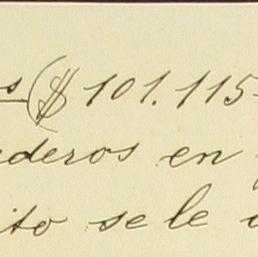 s ($ 101.115-
deros en
ito se le